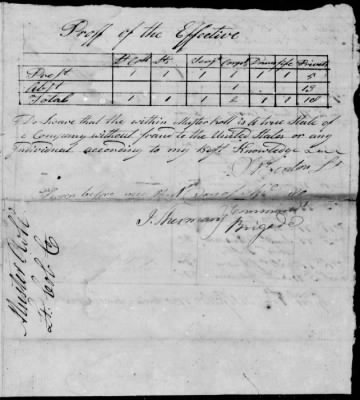 Proff of the Effective
Lt Coll Lt Serjt Corpl Drum fife Privats
Prest 1 1 1 1 1 1 5
Abst 1 13
Total 1 1 1 2 1 1 18
I do Sware that the within Muster Roll is a true State of
a Company without fraud to the United States or any
individual according to my best Knowledge
Lt
Sworn before me this day of
J. Sherman Commandt
Brigade
Muster Roll
Lt Cols Co